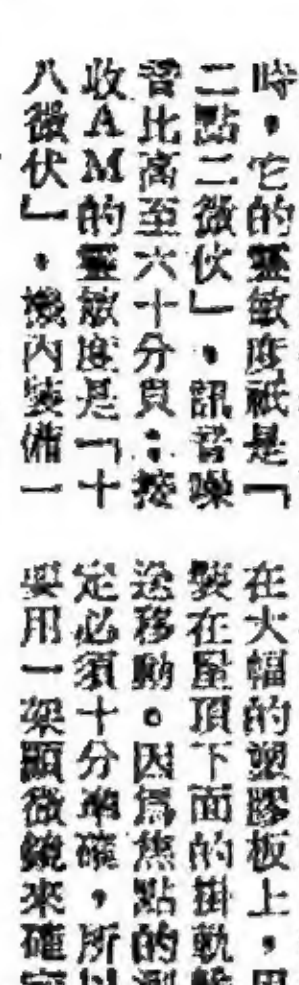 時，它的靈敏度祇是「
二點二微伏」，訊音噪
音比高至六十分貝；接
收AM的靈敏度是「十
八微伏」，機內裝備一
在大幅的塑膠板上，用
裝在屋頂下面的掛軌
移動。因爲焦點的測
定必須十分準確，所以
要用一架顯微鏡來確定